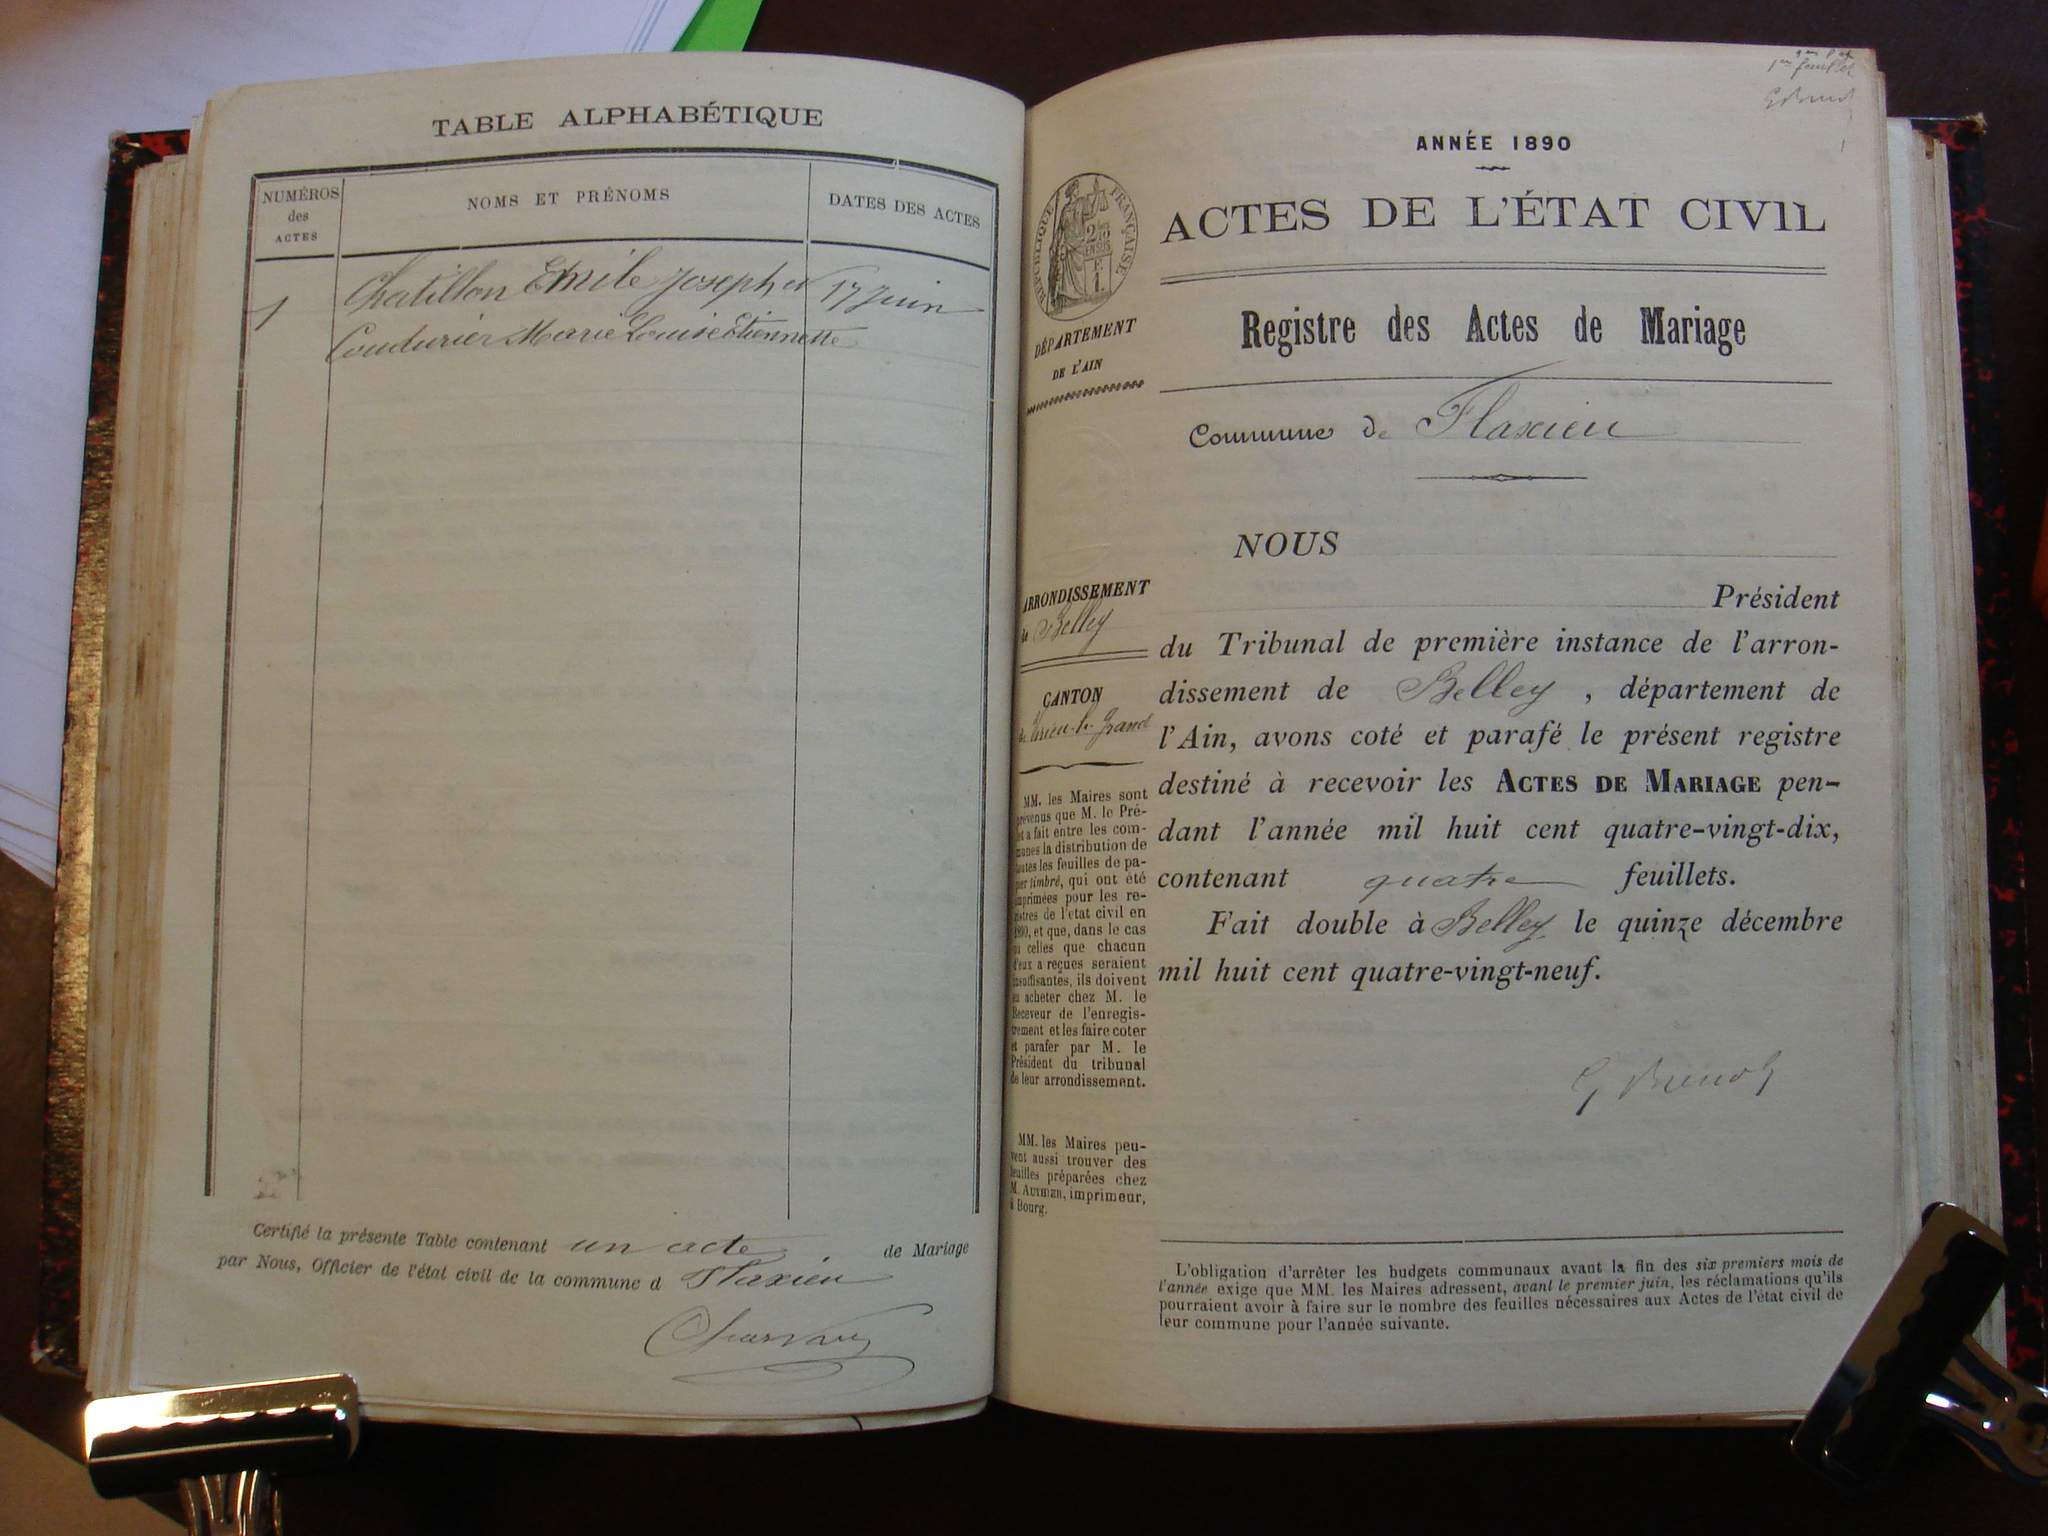 TABLE ALPHABÉTIQUE
NUMÉROS des ACTES
NOMS ET PRÉNOMS
DATES DES ACTES
1
Chatillon Emile Joseph et
17 Juin
Coudurier Marie Louise Etiennette
Certifié la présente Table contenant un acte de Mariage
par Nous, Officier de l'état civil de la commune d Flaxieu
1er feuillet
ANNÉE 1890
ACTES DE L'ÉTAT CIVIL
RÉPUBLIQUE FRANÇAISE
Registre des Actes de Mariage
DÉPARTEMENT
DE L'AIN
Commune de Flaxieu
NOUS
ARRONDISSEMENT
de Belley
CANTON
de Virieu-le-Grand
Président
du Tribunal de première instance de l'arron-
dissement de Belley, département de
l'Ain, avons coté et parafé le présent registre
destiné à recevoir les ACTES DE MARIAGE pen-
dant l'année mil huit cent quatre-vingt-dix,
contenant quatre feuillets.
Fait double à Belley le quinze décembre
mil huit cent quatre-vingt-neuf.
MM. les Maires sont
prévenus que M. le Pré-
fet a fait entre les com-
munes la distribution de
toutes les feuilles de pa-
pier timbré, qui ont été
imprimées pour les re-
gistres de l'état civil en
1890, et que, dans le cas
où celles que chacun
d'eux a reçues seraient
insuffisantes, ils doivent
en acheter chez M. le
Receveur de l'enregis-
trement et les faire coter
et parafer par M. le
Président du tribunal
de leur arrondissement.
MM. les Maires peu-
vent aussi trouver des
feuilles préparées chez
M. imprimeur,
à Bourg.
L'obligation d'arrêter les budgets communaux avant la fin des six premiers mois de
l'année exige que MM. les Maires adressent, avant le premier juin, les réclamations qu'ils
pourraient avoir à faire sur le nombre des feuilles nécessaires aux Actes de l'état civil de
leur commune pour l'année suivante.